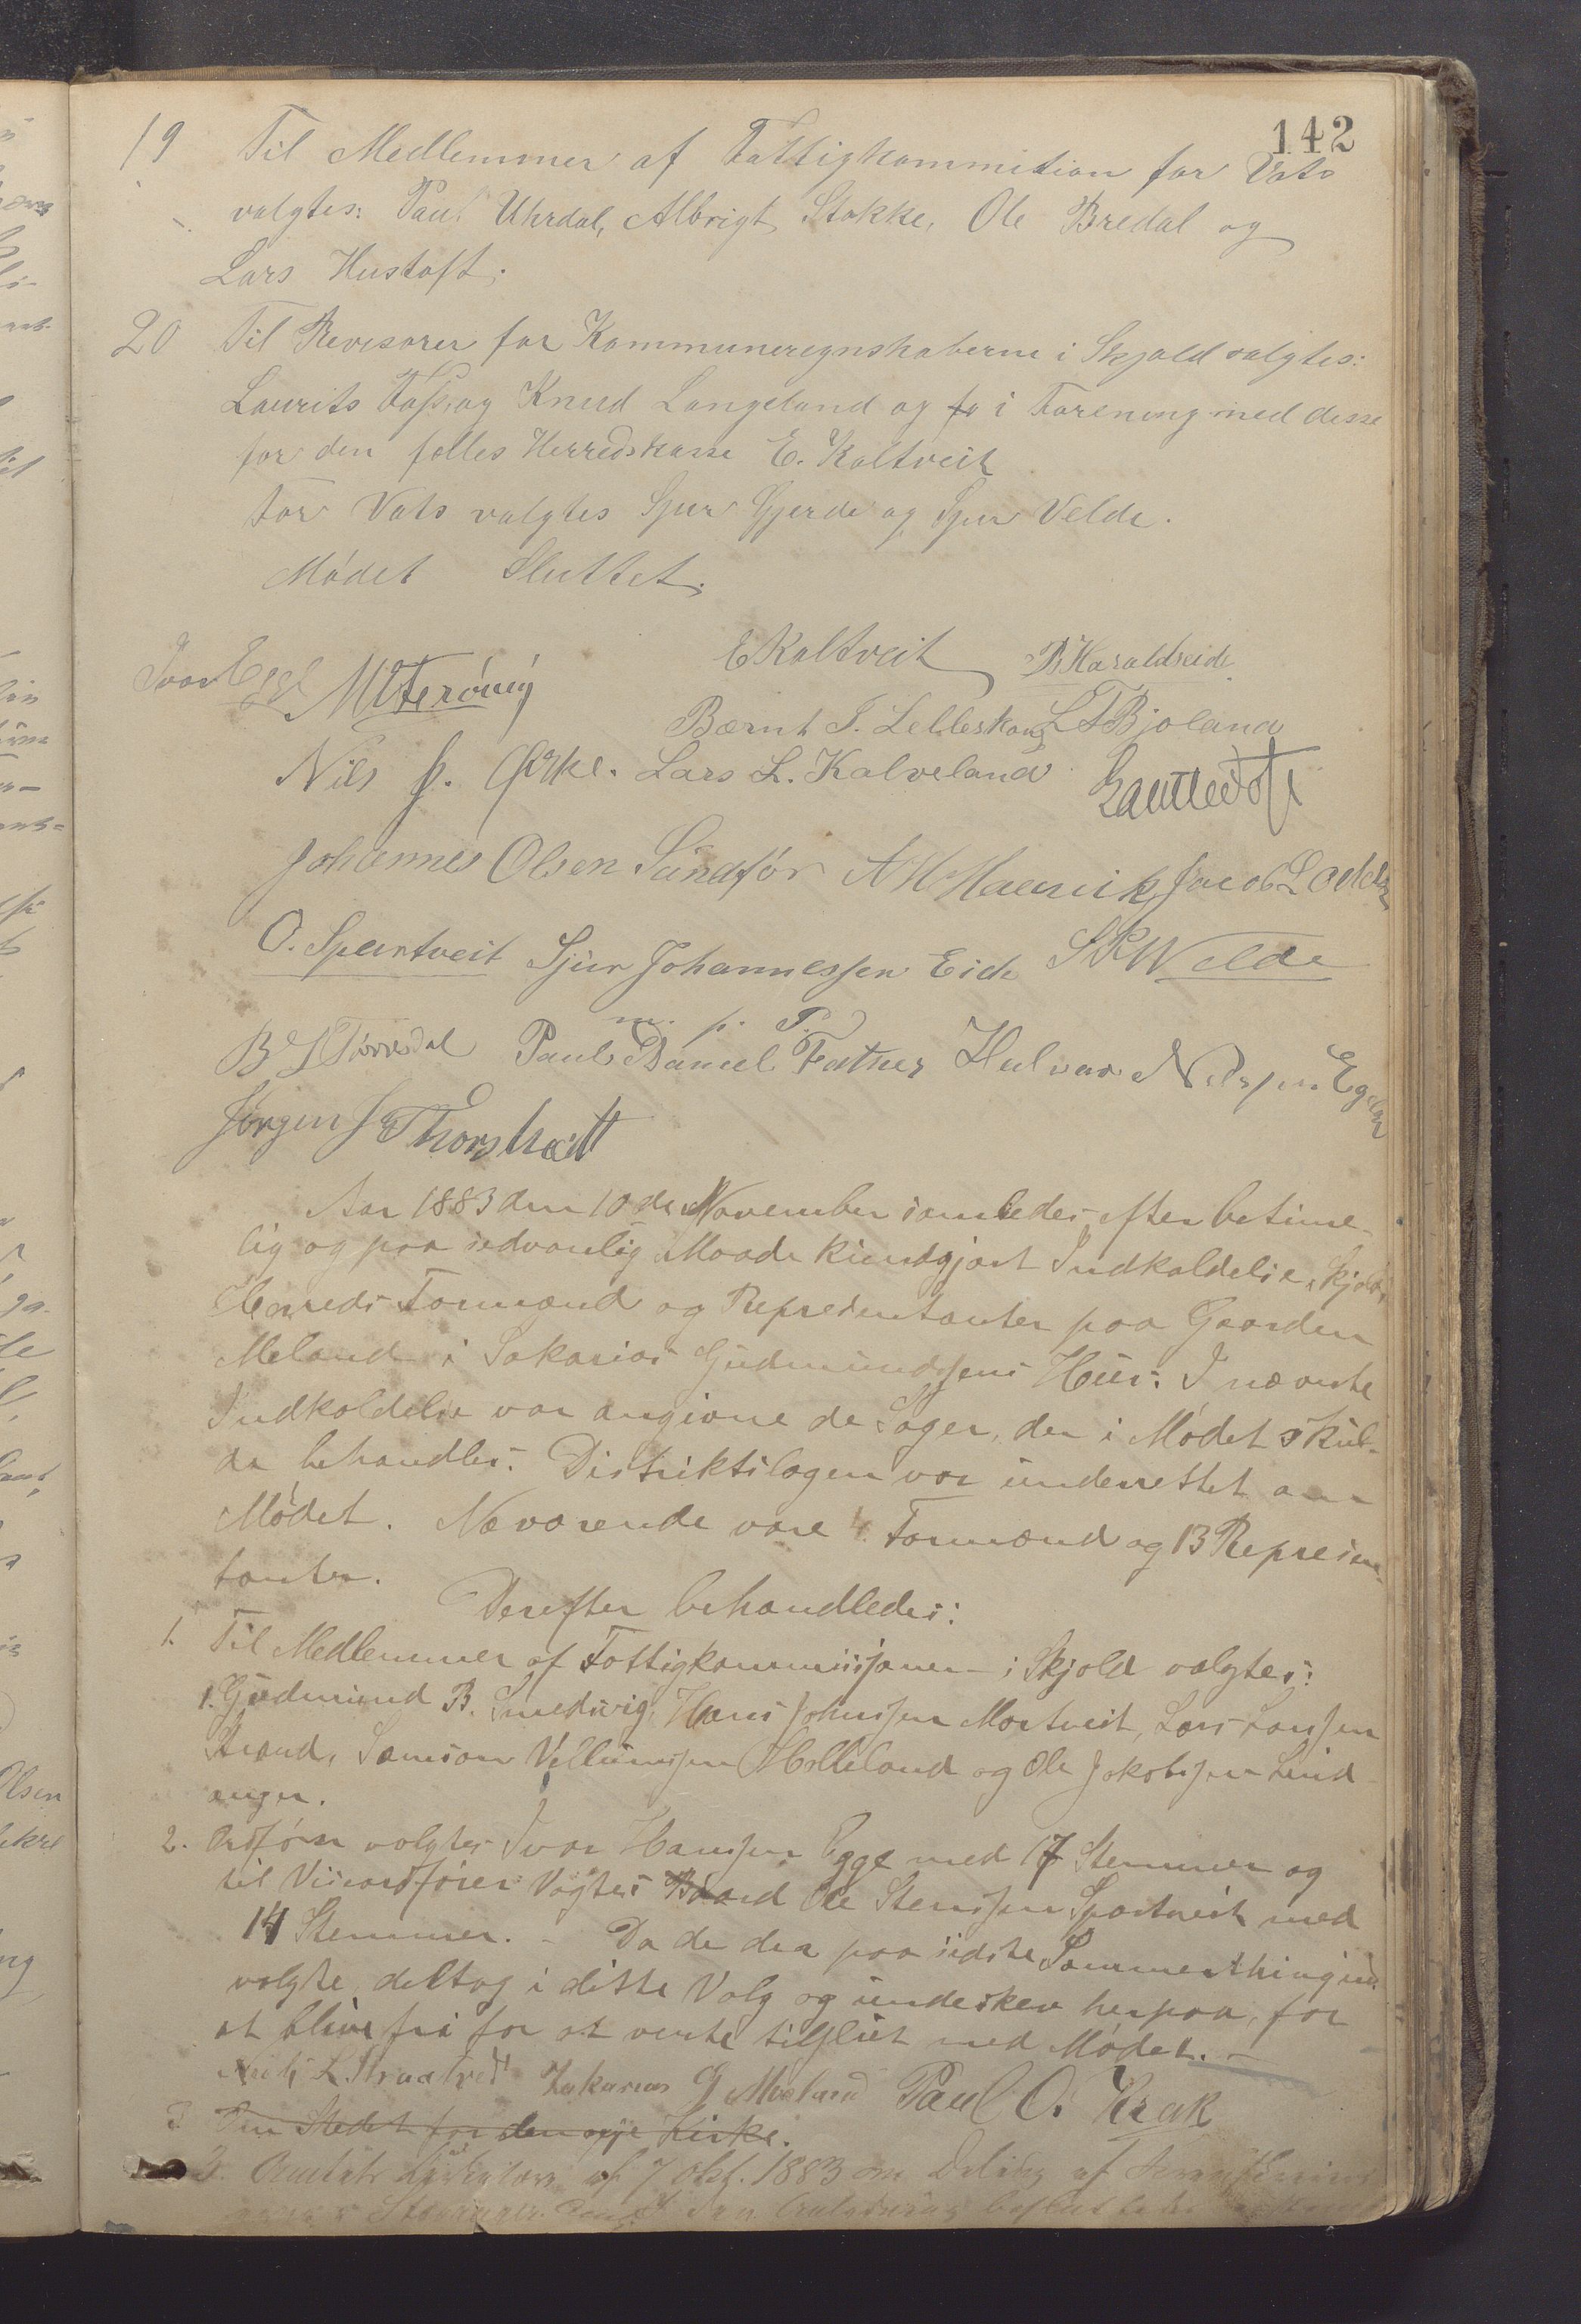 142
19 Til Medlemmer af Fattigkommition for Vats
valgtes: Paul Uhrdal, Albrigt Stakke, Ole Bredal og
Lars Hustoft.
20 Til Revisorer for Kommuneregnskaberne i Skjold valgtes:
Laurits Foss og Knud Langeland og fo i Forening med disse
for den felles Herredskasse E. Kaltveit
For Vats valgtes Sjur Gjerde og Sjur Velde.
Mødet Sluttet.
Ivar Egge E Kaltveit B Haraldseide
Bærnt J. Lelleskog L T Bjoland
Nils J. Lars L. Kalveland
Johannes Olsen Sandfør Jacob
O. Spærtveit Sjur Johannessen Eide Welde
m. p. P.
B Paul Daniel Halvar Nilssen
Jørgen Thorshadt
Aar 1883 den 10de November samledes efter betime-
lig og paa sedvanlig Maade kundgjort Indkaldelse, Skjold
Herreds Formænd og Representanter paa Gaarden
Meland i Sakarias Gudmundsens Hus. I nævnte
Indkaldelse var angivne de Sager, der i Mødet skul-
de behandles. Distriktslægen var underrettet om
Mødet. Nærværende vare 4 Formænd og 13 Represen-
tanter.
Derefter behandledes:
1. Til Medlemmer af Fattigkommissjonen i Skjold valgtes:
1. Gudmund B. Smedsvig, Hans Johnssen Mortveit, Lars Larssen
Strand, Samson Villumssen Helleland og Ole Jakobssen Lind-
anger.
2. Ordfører valgtes Ivar Hanssen Egge med 17 Stemmer og
til Viseordfører Valgtes Baard Ole Stenssen Spartveit med
14 Stemmer. – Da de der paa sidste Sommerthing
valgte, deltog i dette Valg og underskev herpaa, for
at blive fri for at vente tilslut med Mødet. –
Zakarias G Mæland Paul O. Krak
3. Om Stedet for den nye Kirke.
3. Amtets af 7 Okt. 1883 om Deling af